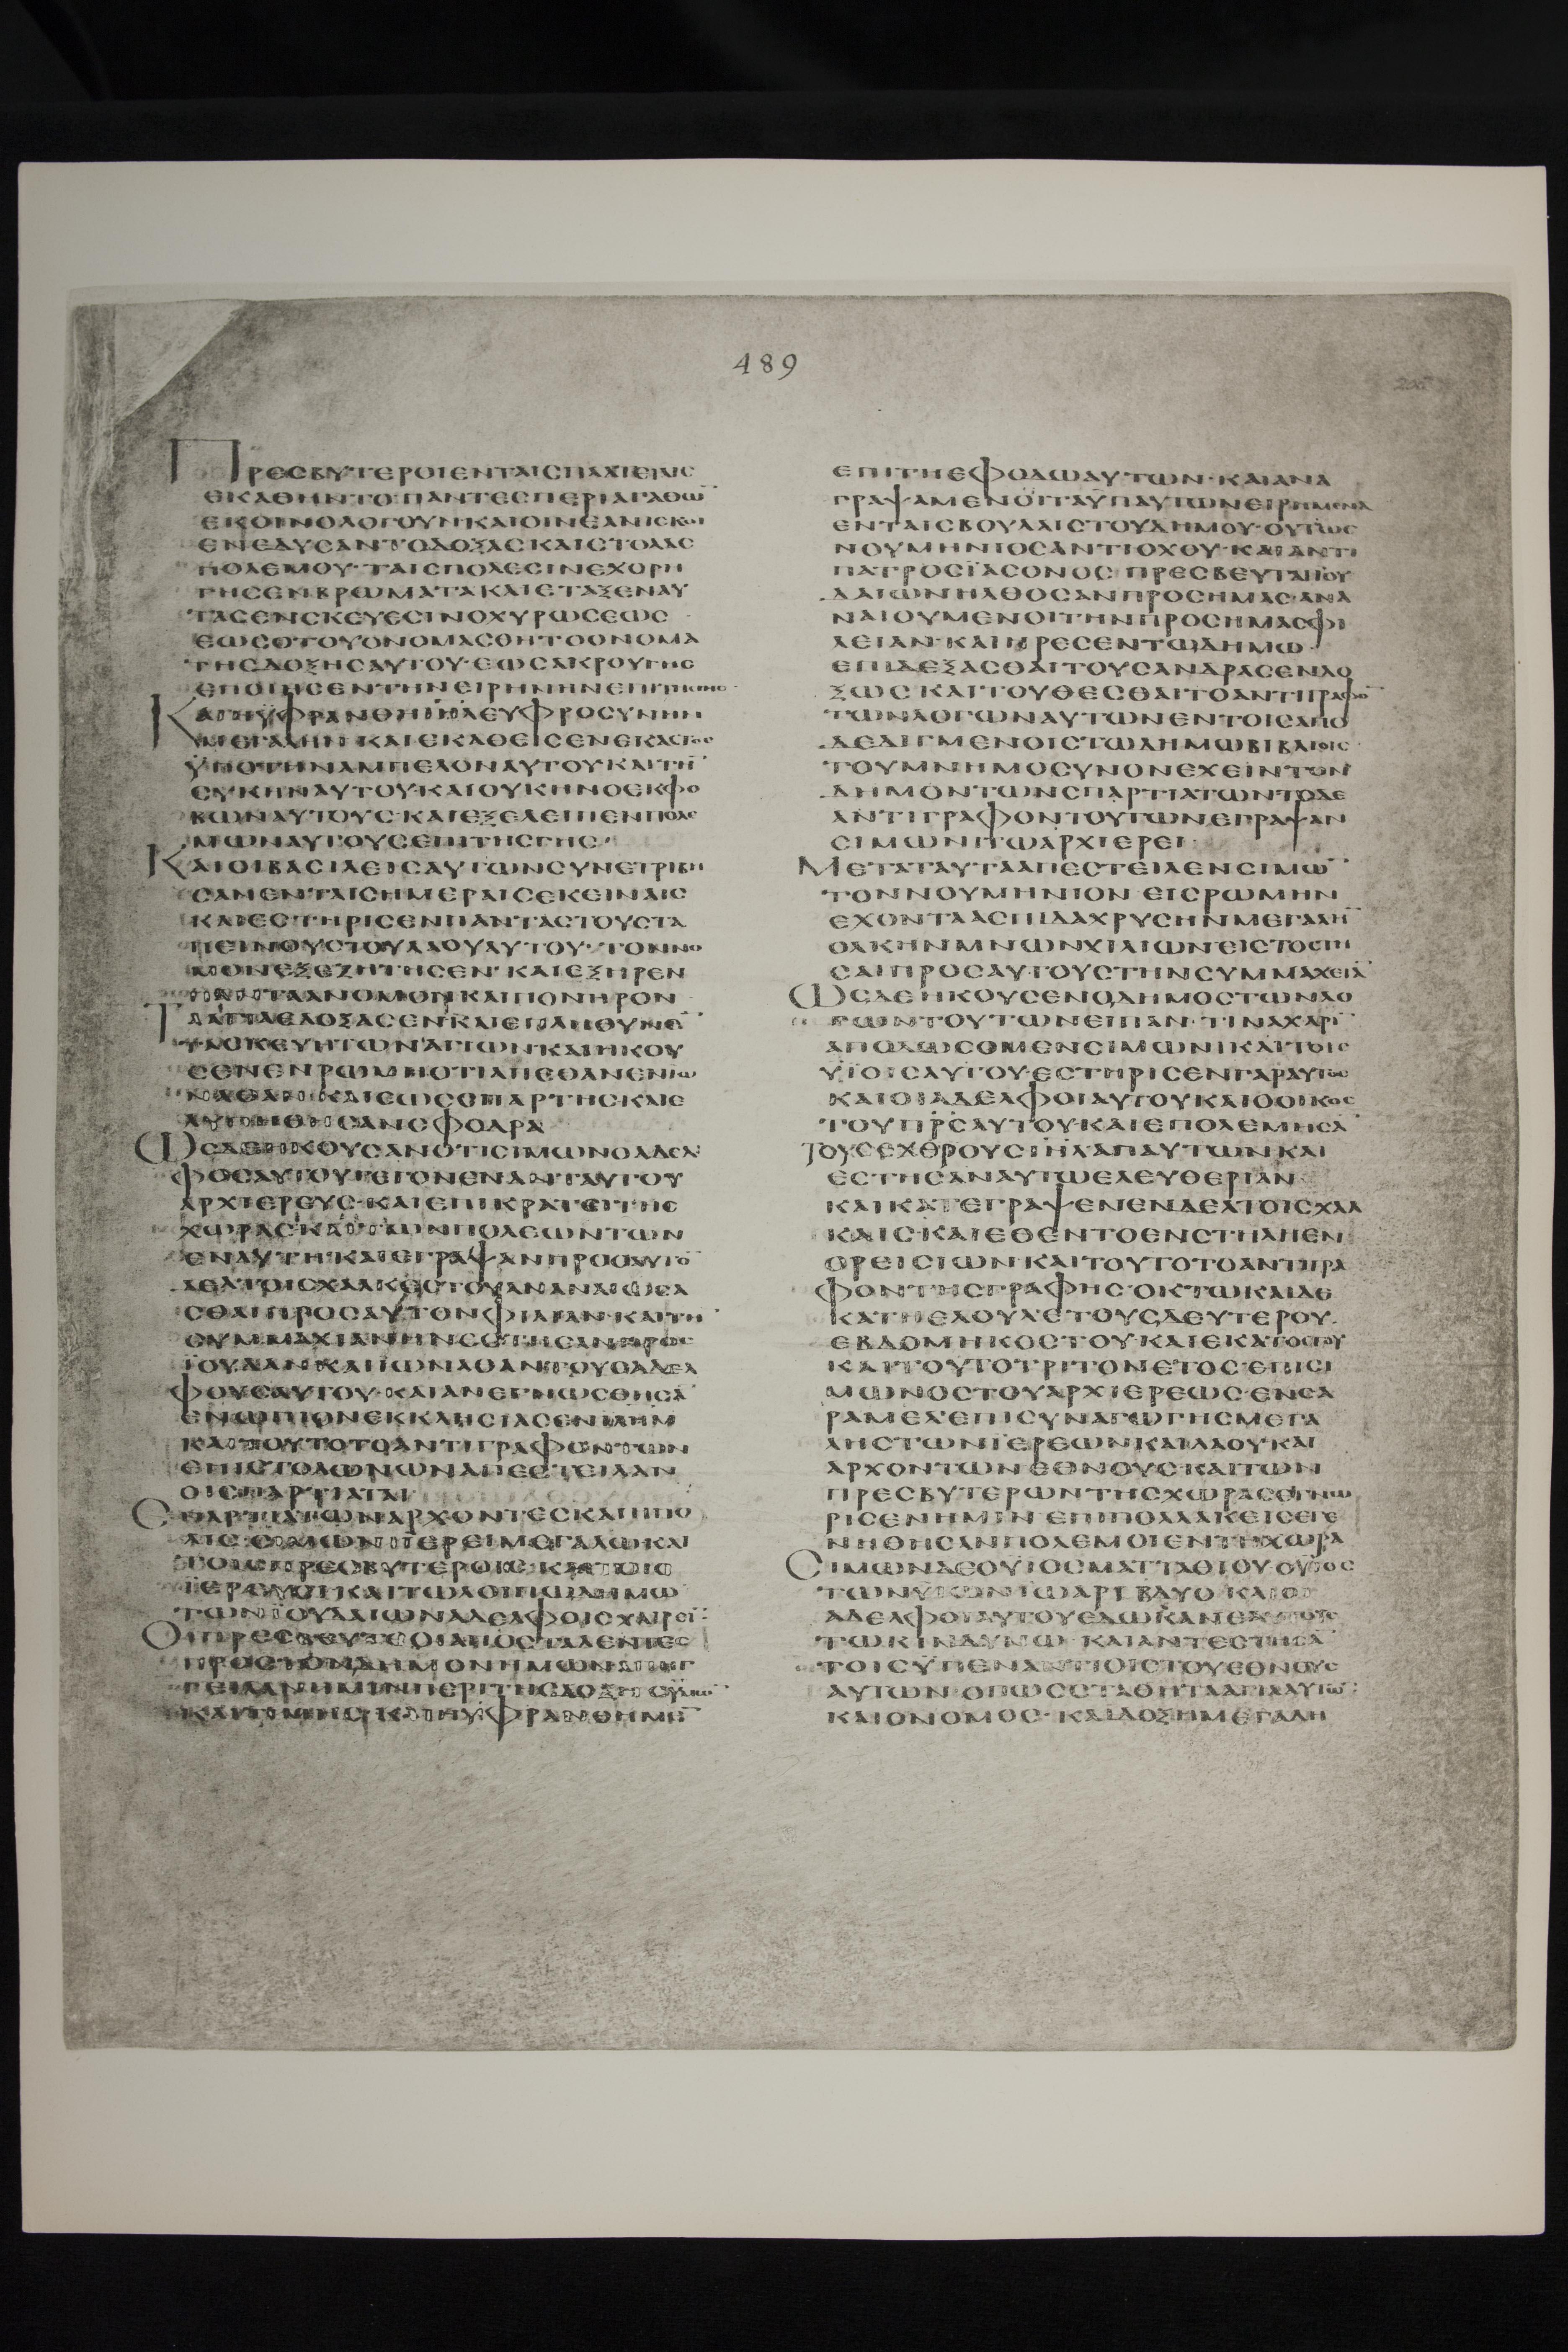 489
ΠΡΕΣΒΥΤΕΡΟΙΕΝΤΑΙΣΠΛΑΤΙΕΙΑΙΣ
ΕΚΑΘΗΝΤΟΠΑΝΤΕΣΠΕΡΙΑΓΑΘΩ̅
ΕΚΟΙΝΟΛΟΓΟΥΝΚΑΙΟΙΝΕΑΝΙΣΚΟΙ
ΕΝΕΔΥΣΑΝΤΟΔΟΞΑΣΚΑΙΣΤΟΛΑΣ
ΠΟΛΕΜΟΥ·ΤΑΙΣΠΟΛΕΣΙΝΕΧΟΡΗ
ΓΗΣΕΝΒΡΩΜΑΤΑΚΑΙΕΤΑΞΕΝΑΥ
ΤΑΣΕΝΣΚΕΥΕΣΙΝΟΧΥΡΩΣΕΩΣ
ΕΩΣΟΤΟΥΟΝΟΜΑΣΘΗΤΟΟΝΟΜΑ
ΤΗΣΔΟΞΗΣΑΥΤΟΥ·ΕΩΣΑΚΡΟΥΓΗΣ
ΕΠΟΙΗΣΕΝΤΗΝΕΙΡΗΝΗΝΕΠΙΤΗΣΓΗΣ·
ΚΑΙΗΥΦΡΑΝΘΗΙΗΛΕΥΦΡΟΣΥΝΗΝ
ΜΕΓΑΛΗΝ·ΚΑΙΕΚΑΘΕΙΣΕΝΕΚΑΣΤΟΣ
ΫΠΟΤΗΝΑΜΠΕΛΟΝΑΥΤΟΥΚΑΙΤΗ̅
ΣΥΚΗΝΑΥΤΟΥ·ΚΑΙΟΥΚΗΝΟΕΚΦΟ
ΒΩΝΑΥΤΟΥΣ·ΚΑΙΕΞΕΛΕΙΠΕΝΠΟΛΕ
ΜΩΝΑΥΤΟΥΣΕΠΙΤΗΣΓΗΣ·
ΚΑΙΟΙΒΑΣΙΛΕΙΣΑΥΤΩΝΣΥΝΕΤΡΙΒΗ
ΣΑΝΕΝΤΑΙΣΗΜΕΡΑΙΣΕΚΕΙΝΑΙΣ
ΚΑΙΕΣΤΗΡΙΣΕΝΠΑΝΤΑΣΤΟΥΣΤΑ
ΠΕΙΝΟΥΣΤΟΥΛΑΟΥΑΥΤΟΥ·ΤΟΝΝΟ
ΜΟΝΕΞΕΖΗΤΗΣΕΝ·ΚΑΙΕΞΗΡΕΝ
ΠΑΝΤΑΑΝΟΜΟΝΚΑΙΠΟΝΗΡΟΝ
ΤΑΑΓΙΑΕΔΟΞΑΣΕΝ·ΚΑΙΕΠΛΗΘΥΝΕ̅
ΤΑΣΚΕΥΗΤΩΝΑΓΙΩΝ·ΚΑΙΗΚΟΥ
ΣΘΗΕΝΡΩΜΗΟΤΙΑΠΕΘΑΝΕΝΙΩ
ΝΑΘΑΝ·ΚΑΙΕΩΣΣΠΑΡΤΗΣΚΑΙΕ
ΛΥΠΗΘΗΣΑΝΣΦΟΔΡΑ
ΩΣΔΕΗΚΟΥΣΑΝΟΤΙΣΙΜΩΝΟΑΔΕΛ
ΦΟΣΑΥΤΟΥΓΕΓΟΝΕΝΑΝΤΑΥΤΟΥ
ΑΡΧΙΕΡΕΥΣ·ΚΑΙΕΠΙΚΡΑΤΕΙΤΗΣ
ΧΩΡΑΣΚΑΙΤΩΝΠΟΛΕΩΝΤΩΝ
ΕΝΑΥΤΗ·ΚΑΙΕΓΡΑΨΑΝΠΡΟΣΑΥΤΟ̅
ΔΕΛΤΟΙΣΧΑΛΚΑΙΣΤΟΥΑΝΑΝΕΩΣΑ
ΣΘΑΙΠΡΟΣΑΥΤΟΝΦΙΛΙΑΝ·ΚΑΙΤΗ̅
ΣΥΜΜΑΧΙΑΝΗΝΕΣΤΗΣΑΝΠΡΟΣ
ΙΟΥΔΑΝ·ΚΑΙΙΩΝΑΘΑΝΤΟΥΣΑΔΕΛ
ΦΟΥΣΑΥΤΟΥ·ΚΑΙΑΝΕΓΝΩΣΘΗΣΑ̅
ΕΝΩΠΙΟΝΕΚΚΛΗΣΙΑΣΕΝΙΛΗΜ
ΚΑΙΤΟΥΤΟΤΟΑΝΤΙΓΡΑΦΟΝΤΩΝ
ΕΠΙΣΤΟΛΩΝΩΝΑΠΕΣΤΕΙΛΑΝ
ΟΙΣΠΑΡΤΙΑΤΑΙ
ΣΠΑΡΤΙΑΤΩΝΑΡΧΟΝΤΕΣΚΑΙΗΠΟ
ΛΙΣ·ΣΙΜΩΝΙΙΕΡΕΙΜΕΓΑΛΩΚΑΙ
ΤΟΙΣΠΡΕΣΒΥΤΕΡΟΙΣ·ΚΑΙΤΟΙΣ
ΪΕΡΕΥΣΙΚΑΙΤΩΛΟΙΠΩΔΗΜΩ
ΤΩΝΙΟΥΔΑΙΩΝΑΔΕΛΦΟΙΣΧΑΙΡΕΙ̅:
ΟΙΠΡΕΣΒΕΥΤΕΟΙΑΠΟΣΤΑΛΕΝΤΕΣ
ΠΡΟΣΤΟΝΔΗΜΟΝΗΜΩΝΑΠΗΓ
ΓΕΙΛΑΝΗΜΙΝΠΕΡΙΤΗΣΔΟΞΗΣΫΜΩ̅
ΚΑΙΤΙΜΗΣ·ΚΑΙΗΥΦΡΑΝΘΗΜΕ̅
ΕΠΙΤΗΕΦΟΔΩΑΥΤΩΝ·ΚΑΙΑΝΑ
ΓΡΑΨΑΜΕΝΟΙΤΑΫΠΑΥΤΩΝΕΙΡΗΜΕΝΑ
ΕΝΤΑΙΣΒΟΥΛΑΙΣΤΟΥΔΗΜΟΥ·ΟΥΤΩΣ
ΝΟΥΜΗΝΙΟΣΑΝΤΙΟΧΟΥ·ΚΑΙΑΝΤΙ
ΠΑΤΡΟΣΪΑΣΟΝΟΣ ΠΡΕΣΒΕΥΤΑΙΙΟΥ
ΔΑΙΩΝΗΛΘΟΣΑΝΠΡΟΣΗΜΑΣ·ΑΝΑ
ΝΑΙΟΥΜΕΝΟΙΤΗΝΠΡΟΣΗΜΑΣΦΙ
ΛΕΙΑΝ·ΚΑΙΗΡΕΣΕΝΤΩΔΗΜΩ
ΕΠΙΔΕΞΑΣΘΑΙΤΟΥΣΑΝΔΡΑΣΕΝΔΟ
ΞΩΣ·ΚΑΙΤΟΥΘΕΣΘΑΙΤΟΑΝΤΙΓΡΑΦΟ̅
ΤΩΝΛΟΓΩΝΑΥΤΩΝΕΝΤΟΙΣΑΠΟ
ΔΕΔΙΓΜΕΝΟΙΣΤΩΔΗΜΩΒΙΒΛΙΟΙΣ·
ΤΟΥΜΝΗΜΟΣΥΝΟΝΕΧΕΙΝΤΟΝ
ΔΗΜΟΝΤΩΝΣΠΑΡΤΙΑΤΩΝΤΟΔΕ
ΑΝΤΙΓΡΑΦΟΝΤΟΥΤΩΝΕΓΡΑΨΑΝ
ΣΙΜΩΝΙΤΩΑΡΧΙΕΡΕΙ·
ΜΕΤΑΤΑΥΤΑΑΠΕΣΤΕΙΛΕΝΣΙΜΩ̅
ΤΟΝΝΟΥΜΗΝΙΟΝ ΕΙΣΡΩΜΗΝ
ΕΧΟΝΤΑΑΣΠΙΔΑΧΡΥΣΗΝΜΕΓΑΛΗ̅
ΟΛΚΗΝΜΝΩΝΧΙΛΙΩΝ·ΕΙΣΤΟΣΤΗ
ΣΑΙΠΡΟΣΑΥΤΟΥΣΤΗΝΣΥΜΜΑΧΕΙΑ̅
ΩΣΔΕΗΚΟΥΣΕΝΟΔΗΜΟΣΤΩΝΛΟ
ΓΩΝΤΟΥΤΩΝΕΙΠΑΝ·ΤΙΝΑΧΑΡΙ̅
ΑΠΟΔΩΣΟΜΕΝΣΙΜΩΝΙΚΑΙΤΟΙΣ
ΥΪΟΙΣΑΥΤΟΥ·ΕΣΤΗΡΙΣΕΝΓΑΡΑΥΤΟΣ
ΚΑΙΟΙΑΔΕΛΦΟΙΑΥΤΟΥΚΑΙΟΟΙΚΟΣ
ΤΟΥΠΡΣΑΥΤΟΥ·ΚΑΙΕΠΟΛΕΜΗΣΑ̅
ΤΟΥΣΕΧΘΡΟΥΣΙΗΛΑΠΑΥΤΩΝΚΑΙ
ΕΣΤΗΣΑΝΑΥΤΩΕΛΕΥΘΕΡΙΑΝ
ΚΑΙΚΑΤΕΓΡΑΨΕΝΕΝΔΕΛΤΟΙΣΧΑΛ
ΚΑΙΣ·ΚΑΙΕΘΕΝΤΟΕΝΣΤΗΛΗΕΝ
ΟΡΕΙΣΙΩΝΚΑΙΤΟΥΤΟΤΟΑΝΤΙΓΡΑ
ΦΟΝΤΗΣΓΡΑΦΗΣ·ΟΚΤΩΚΑΙΔΕ
ΚΑΤΗΕΛΟΥΛΕΤΟΥΣΔΕΥΤΕΡΟΥ·
ΕΒΔΟΜΗΚΟΣΤΟΥ·ΚΑΙΕΚΑΤΟΣΤΟΥ
ΚΑΙΤΟΥΤΟΤΡΙΤΟΝΕΤΟΣ·ΕΠΙΣΙ
ΜΩΝΟΣΤΟΥΑΡΧΙΕΡΕΩΣ·ΕΝΣΑ
ΡΑΜΕΛΕΠΙΣΥΝΑΓΩΓΗΣΜΕΓΑ
ΛΗΣΤΩΝΪΕΡΕΩΝΚΑΙΛΑΟΥΚΑΙ
ΑΡΧΟΝΤΩΝΕΘΝΟΥΣ·ΚΑΙΤΩΝ
ΠΡΕΣΒΥΤΕΡΩΝΤΗΣΧΩΡΑΣΕΓΝΩ
ΡΙΣΕΝΗΜΙΝ ΕΠΙΠΟΛΛΑΚΕΙΣΕΓΕ
ΝΗΘΗΣΑΝΠΟΛΕΜΟΙΕΝΤΗΧΩΡΑ
ΣΙΜΩΝΔΕΟΥΪΟΣΜΑΤΤΑΘΙΟΥΟΥΪΟΣ
ΤΩΝΥΪΩΝΙΩΑΡΙΒ ΚΑΙΟΙ
ΑΔΕΛΦΟΙΑΥΤΟΥΕΔΩΚΑΝΕΑΥΤΟΥΣ
ΤΩΚΙΝΔΥΝΩ·ΚΑΙΑΝΤΕΣΤΗΣΑ̅
ΤΟΙΣΫΠΕΝΑΝΤΙΟΙΣΤΟΥΕΘΝΟΥΣ
ΑΥΤΩΝ·ΟΠΩΣΣΤΑΘΗΤΑΑΓΙΑΑΥΤΩ̅:
ΚΑΙΟΝΟΜΟΣ·ΚΑΙΔΟΞΗΜΕΓΑΛΗ